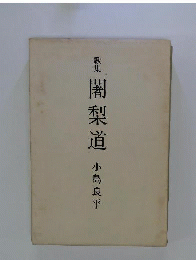 歌集
闍梨道
小島良平